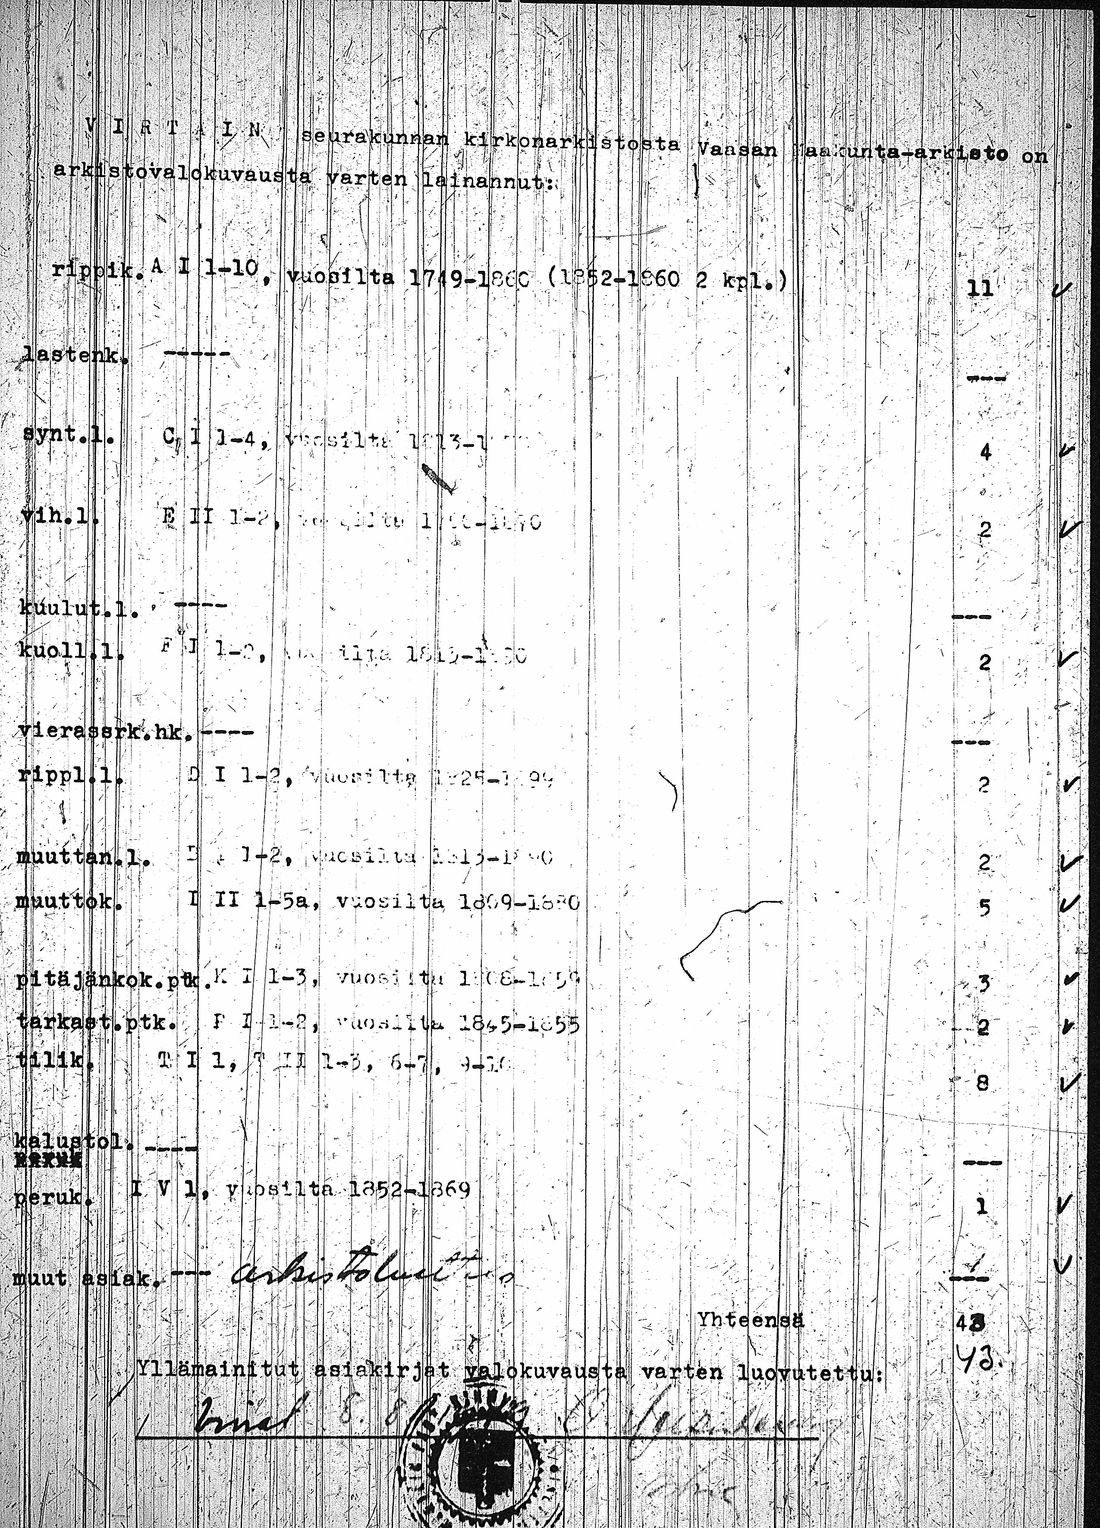 V I R T A I N seurakunnan kirkonarkistosta Vaasan maakunta-arkisto on
arkistovalokuvausta varten lainannut:
rippik. A I 1-10, vuosilta 1749-1860 (1852-1860 2 kpl.) 11 ✓
lastenk. ----- ---
synt.l. C I 1-4, vuosilta 4 ✓
vih.l. E II 1-2, vuosilta 2 ✓
kuulut.l. ---- ---
kuoll.l. F I 1-2, vuosilta 2 ✓
vierassrk.hk. ---- ---
rippl.l. D I 1-2, vuosilta 2 ✓
muuttan.l. 1-2, vuosilta 2 ✓
muuttok. I II 1-5a, vuosilta 1809-1880 5 ✓
pitäjänkok.ptk. K I 1-3, vuosilta 3 ✓
tarkast.ptk. P I 1-2, vuosilta 1845-1855 2 ✓
tilik. T I 1, T II 1-3, 6-7, 9-10 8 ✓
kalustol. ---- ---
peruk. I V 1, vuosilta 1852-1869 1 ✓
muut asiak. --- arkistoluettelo 1 ✓
Yhteensä
43.
Yllämainitut asiakirjat valokuvausta varten luovutettu: